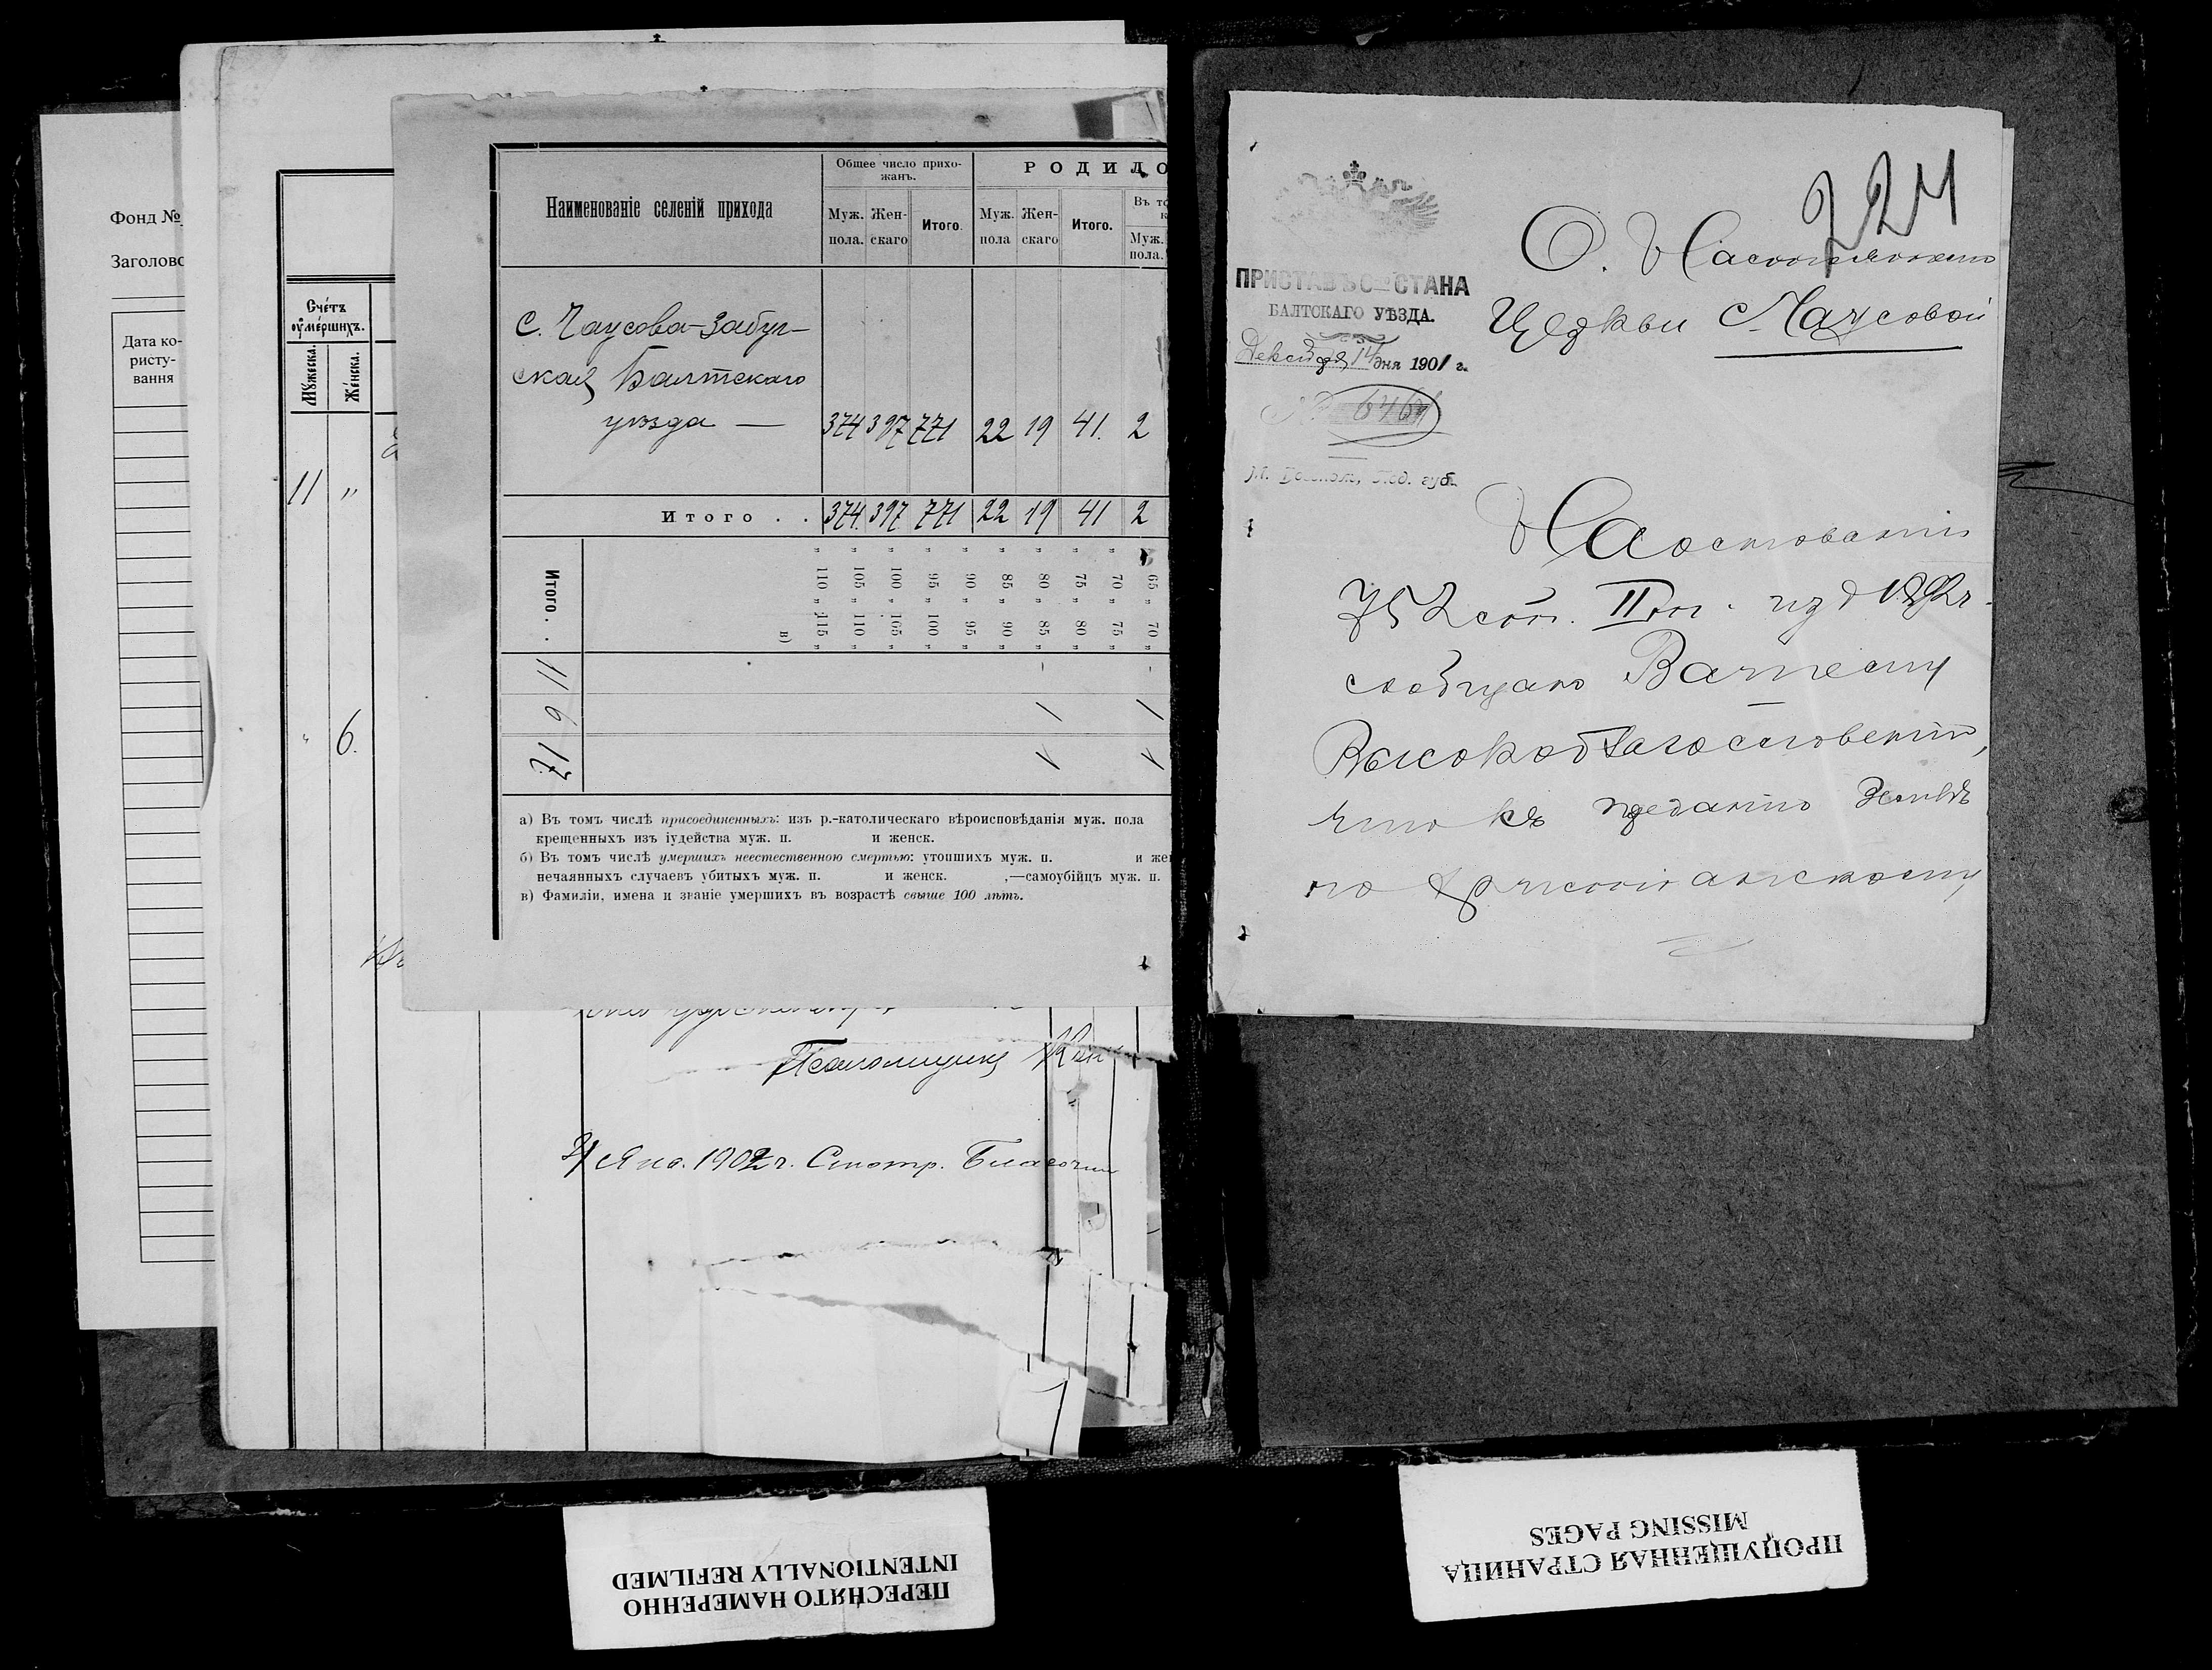 Фонд №
Заголово
Дата ко-
ристу-
вання
Счётъ
оумершихъ.
Мужеска.
Женска.
11 "
" 6.
Наименованіе селеній прихода
Общее число прихо-
жанъ.
РОДИЛО
Муж.
пола.
Жен-
скаго
Итого.
Муж.
пола
Жен-
скаго
Итого.
Въ то
Муж.
пола.
с. Чаусова-Забуг-
ская Балтскаго
уѣзда —
374 397 771 22 19 41. 2
Итого . . 374. 397 771 22 19 41 2
Итого . . 11 6 17
" 110 " 115 "
" 105 " 110 "
" 100 " 105 "
" 95 " 100 "
" 90 " 95 "
" 85 " 90 "
" 80 " 85 " - 1 1
" 75 " 80 "
" 70 " 75 "
65 " 70 " - 1 1
в)
а) Въ томъ числѣ присоединенныхъ: изъ р.-католическаго вѣроисповѣданія муж. пола
крещенныхъ изъ іудейства муж. п. и женск.
б) Въ томъ числѣ умершихъ неестественною смертью: утопшихъ муж. п. и же
нечаянныхъ случаевъ убитыхъ муж. п. и женск. ,—самоубійцъ муж. п.
в) Фамиліи, имена и званіе умершихъ въ возрастѣ свыше 100 лѣтъ.
Псаломщикъ
21 Янв. 1902 г. Смотр. Благочин
224
ПРИСТАВЪ СТАНА
БАЛТСКАГО УѢЗДА.
Декабря 14 дня 1901 г.
№ 6461
м. Под. губ.
О. Настоятелю
Церкви с. Чаусовой
На основаніи
752 ст. II т. изд 1892 г.
сообщаю Вашему
Высокоблагословенію,
что къ преданію Землѣ
по христіанскому
ПЕРЕСНЯТО НАМЕРЕННО
INTENTIONALLY REFILMED
ПРОПУЩЕННАЯ СТРАНИЦА
MISSING PAGES